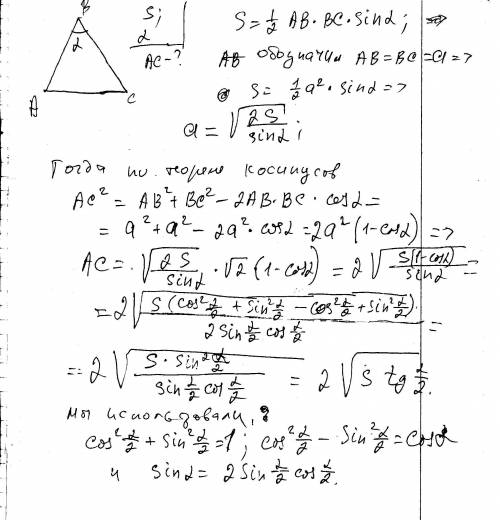 B
α
A
C
S;
α
AC-?
S = 1/2 AB·BC·sinα; =>
обозначим AB=BC=a =>
S = 1/2 a²·sinα =>
a = √(2S/sinα);
Тогда по теореме косинусов
AC² = AB² + BC² - 2AB·BC·cosα =
= a² + a² - 2a²·cosα = 2a²(1-cosα) =>
AC = √(2S/sinα)·√2(1-cosα) = 2√(S(1-cosα)/sinα) =
= 2√(S(cos² α/2 + sin² α/2 - cos² α/2 + sin² α/2)/(2sin α/2 cos α/2)) =
= 2√(S·sin² α/2/(sin α/2 cos α/2)) = 2√(S tg α/2).
мы использовали,
cos² α/2 + sin² α/2 = 1; cos² α/2 - sin² α/2 = cosα
и sinα = 2sin α/2 cos α/2.